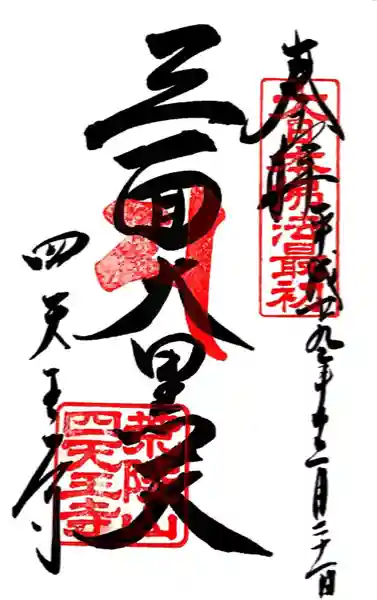 奉拝
平成廿九年十二月二十一日
大日本佛法最初
三面大黒天
四天王寺
荒陵山
四天王寺